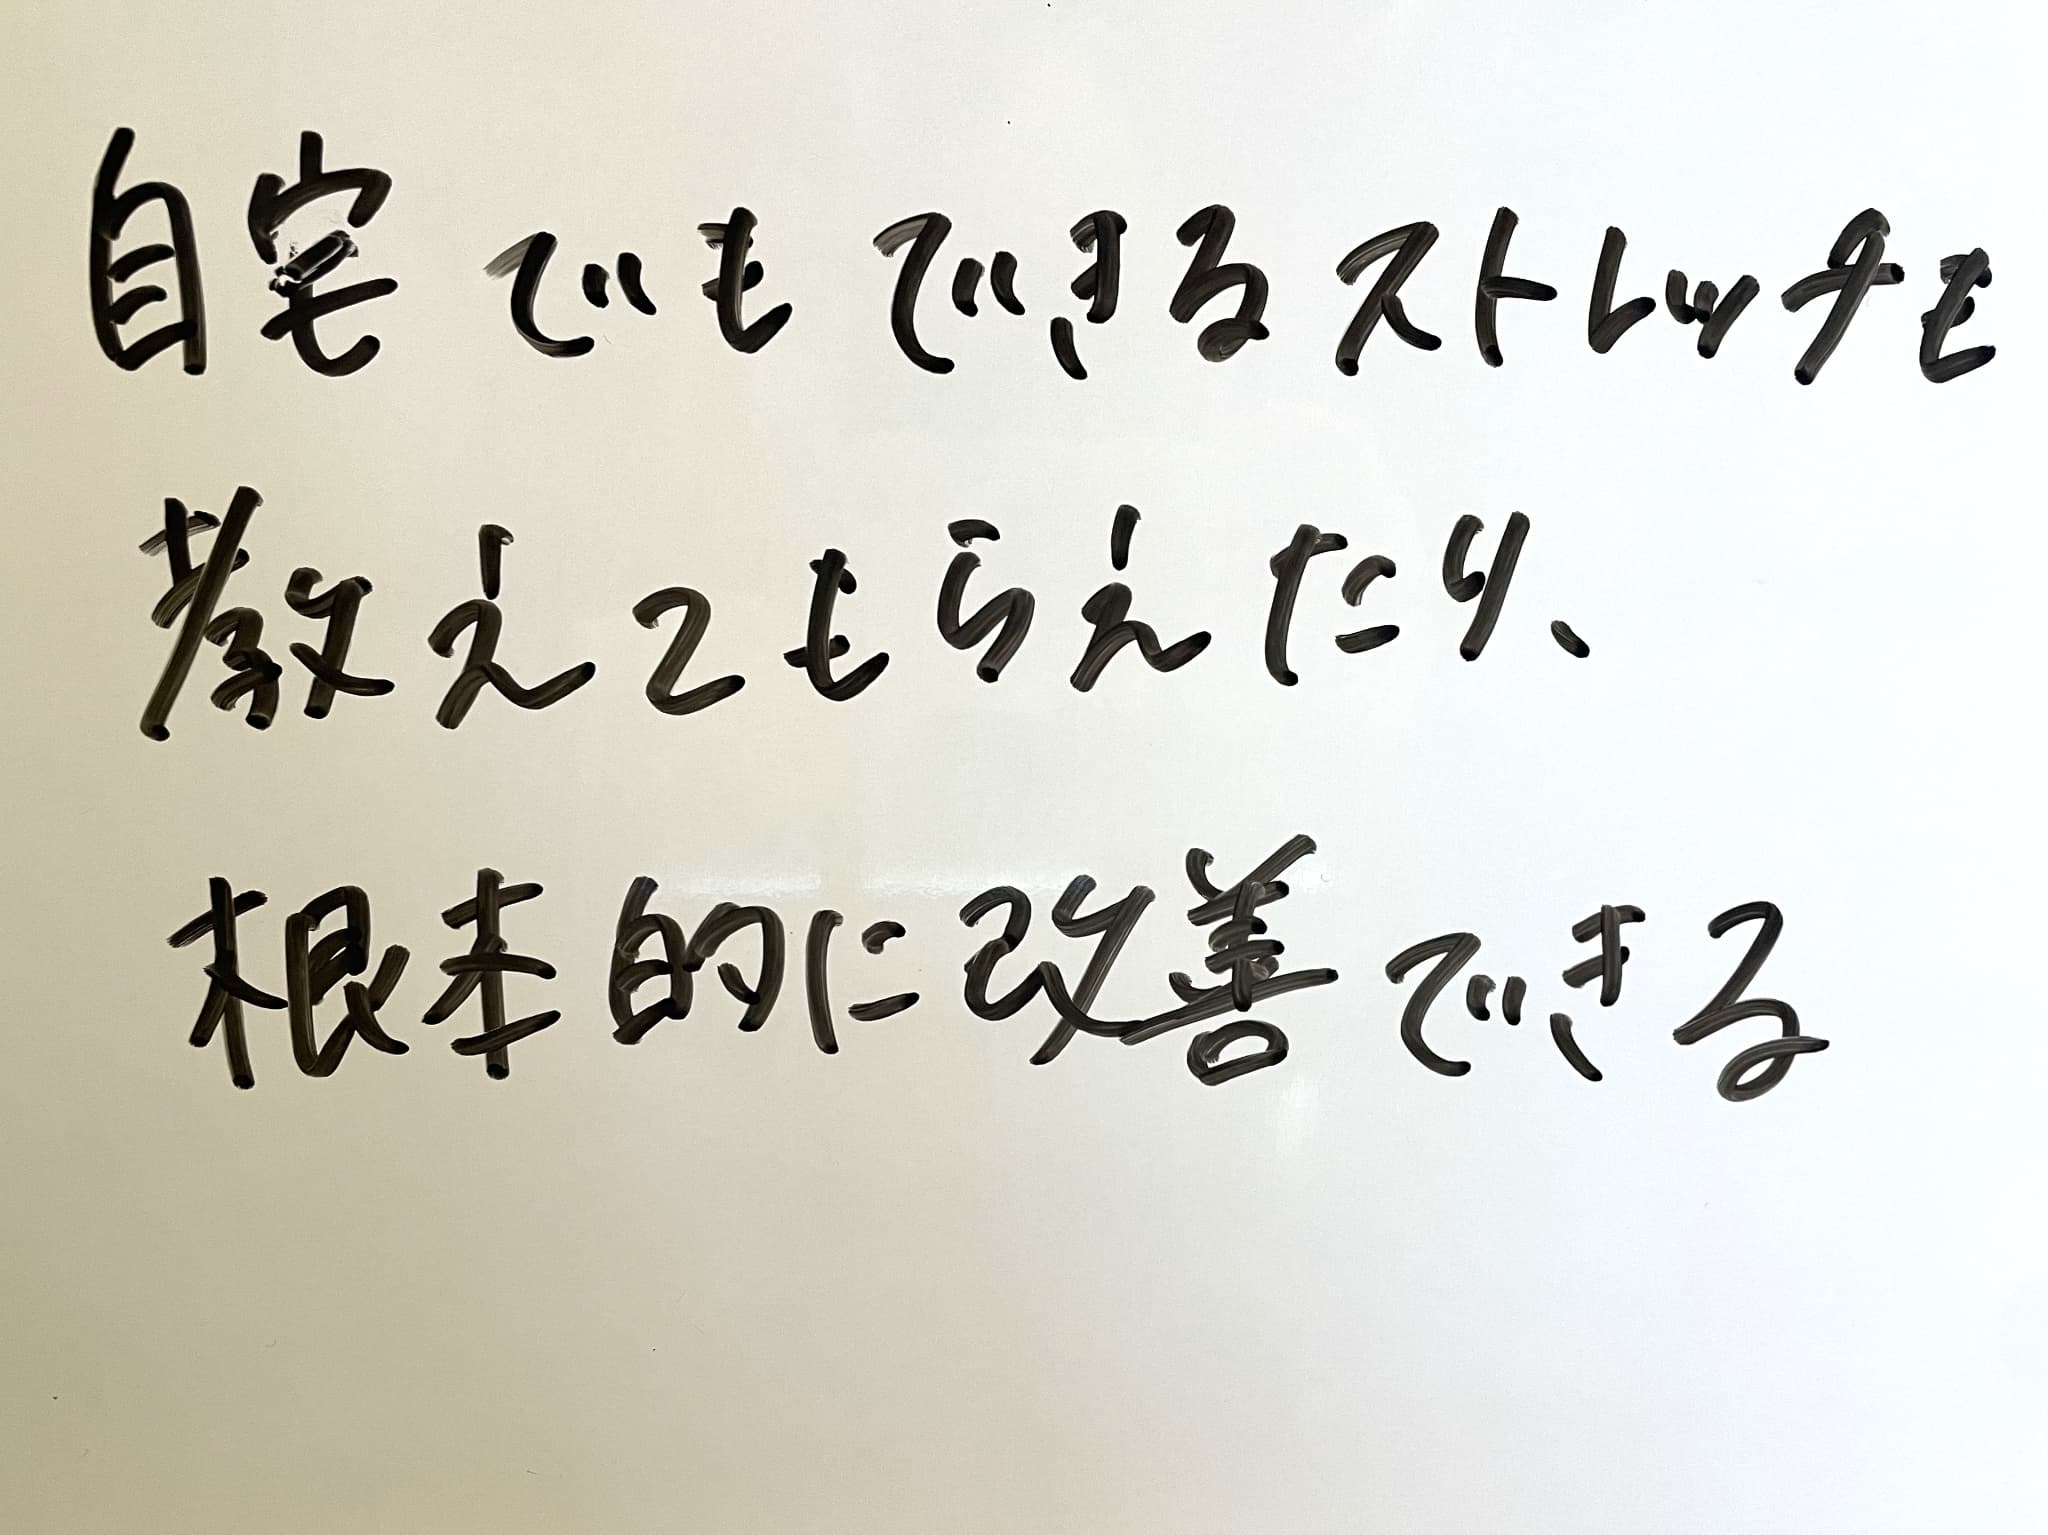 自宅でもできるストレッチも
教えてもらえたり、
根本的に改善できる